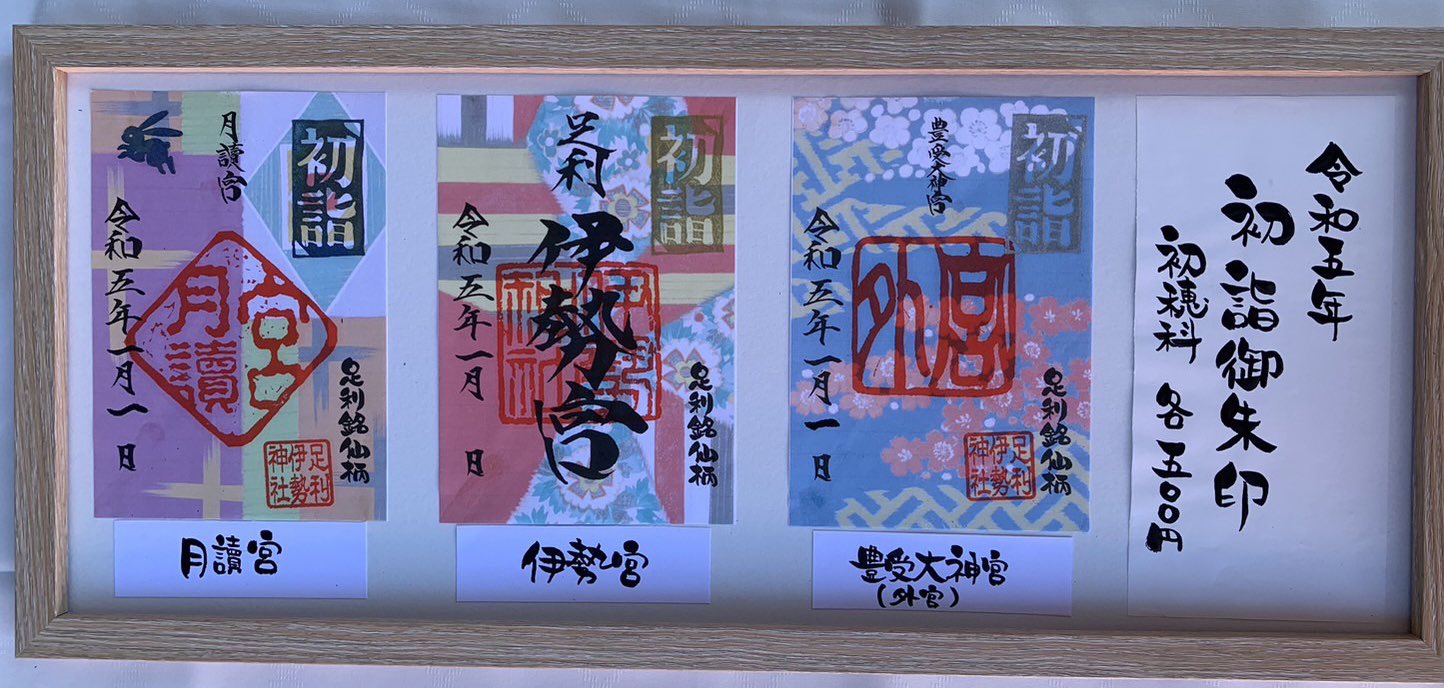 令和五年
初詣御朱印
初穂料 各五〇〇円
初詣
豊受大神宮
外宮
令和五年一月一日
足利銘仙柄
足利伊勢神社
豊受大神宮
(外宮)
初詣
足利
伊勢宮
伊勢神社
令和五年一月 日
足利銘仙柄
伊勢宮
初詣
月讀宮
月讀宮
令和五年一月一日
足利銘仙柄
足利伊勢神社
月讀宮